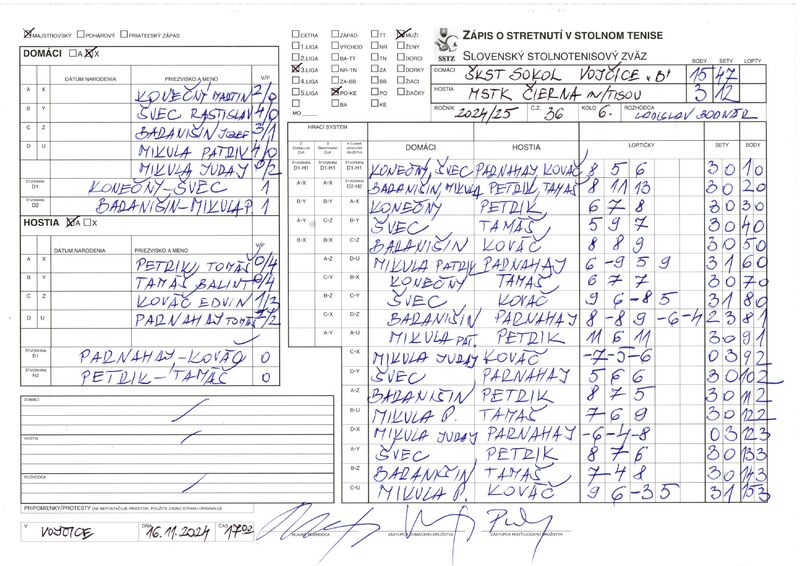 MAJSTROVSKÝ POHÁROVÝ PRIATEĽSKÝ ZÁPAS
DOMÁCI A X
DÁTUM NARODENIA PRIEZVISKO A MENO V/P
A X KONEČNÝ MARTIN 2/0
B Y ŠVEC RASTISLAV 4/0
C Z BARANIŠIN JOZEF 3/1
D U MIKULA PATRIK 4/0
MIKULA JURAY 0/2
ŠTVORHRA D1 KONEČNÝ-ŠVEC 1
ŠTVORHRA D2 BARANIŠIN-MIKULA P. 1
HOSTIA A X
DÁTUM NARODENIA PRIEZVISKO A MENO V/P
A X PETRIK, TOMÁŠ 0/4
B Y TAMÁŠ BALINT 0/4
C Z KOVÁČ EDVIN 1/3
D U PARNAHAY TOMÁŠ 2/2
ŠTVORHRA D1 PARNAHAY-KOVÁČ 0
ŠTVORHRA H2 PETRIK-TAMÁŠ 0
DOMÁCI
HOSTIA
ROZHODCA
PRIPOMIENKY/PROTESTY (AK NEPOSTAČUJE PRIESTOR, POUŽITE ZADNÚ STRANU ORIGINÁLU)
V VOJČICE DŇA 16.11.2024 ČAS 17:00
HLAVNÝ ROZHODCA ZÁSTUPCA DOMÁCEHO DRUŽSTVA ZÁSTUPCA HOSŤUJÚCEHO DRUŽSTVA
EXTRA ZÁPAD TT MUŽI
1.LIGA VÝCHOD NR ŽENY
2.LIGA BA-TT TN DORCI
3.LIGA NR-TN ZA DORKY
4.LIGA ZA-BB BB ŽIACI
5.LIGA PO-KE PO ŽIAČKY
BA KE
MO
SSTZ
ZÁPIS O STRETNUTÍ V STOLNOM TENISE
SLOVENSKÝ STOLNOTENISOVÝ ZVÄZ
BODY SETY LOPTY
DOMÁCI ŠKST SOKOL VOJČICE "B" 15 47
HOSTIA MSTK ČIERNA N/TISOU 3 12
ROČNÍK 2024/25 Č.Z. 36 KOLO 6. ROZHODCA LADISLAV BODNÁR
HRACÍ SYSTÉM
DOMÁCI HOSTIA LOPTIČKY SETY BODY
ŠTVORHRA D1-H1 ŠTVORHRA D1-H1 ŠTVORHRA D1-H1 KONEČNÝ, ŠVEC PARNAHAY, KOVÁČ 8 5 6 3 0 1 0
A-X A-X ŠTVORHRA D2-H2 BARANIŠIN, MIKULA PETRIK, TAMÁŠ 8 11 13 3 0 2 0
B-Y B-Y A-X KONEČNÝ PETRIK 6 7 8 3 0 3 0
A-Y C-Z B-Y ŠVEC TAMÁŠ 5 9 7 3 0 4 0
B-X B-X C-Z BARANIŠIN KOVÁČ 8 8 9 3 0 5 0
A-Z D-U MIKULA PATRIK PARNAHAY 6 -9 5 9 3 1 6 0
C-Y B-X KONEČNÝ TAMÁŠ 6 7 7 3 0 7 0
B-Z C-Y ŠVEC KOVÁČ 9 6 -8 5 3 1 8 0
C-X D-Z BARANIŠIN PARNAHAY 8 -8 9 -6 -4 2 3 8 1
A-Y A-U MIKULA PAT. PETRIK 11 6 11 3 0 9 1
C-X MIKULA JURAY KOVÁČ -7 -5 -6 0 3 9 2
D-Y ŠVEC PARNAHAY 5 6 6 3 0 10 2
A-Z BARANIŠIN PETRIK 8 7 5 3 0 11 2
B-U MIKULA P. TAMÁŠ 7 6 9 3 0 12 2
D-X MIKULA JURAY PARNAHAY -6 -4 -8 0 3 12 3
A-Y ŠVEC PETRIK 8 7 6 3 0 13 3
B-Z BARANIŠIN TAMÁŠ 7 4 8 3 0 14 3
C-U MIKULA P. KOVÁČ 9 6 -3 5 3 1 15 3